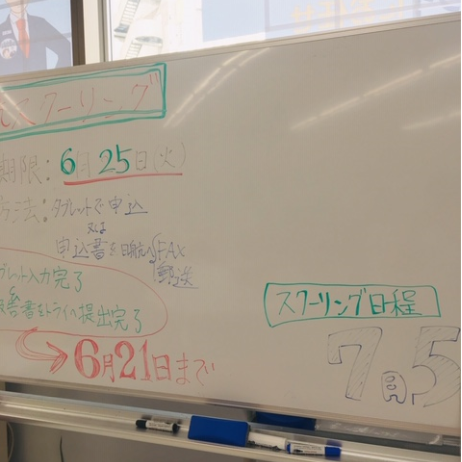 スクーリング
期限: 6月25日(火)
方法: タブレットで申込
又は
申込書を日航へFAX
郵送
ブレット入力完了
書をトライへ提出完了
6月21日まで
スクーリング日程
7月5